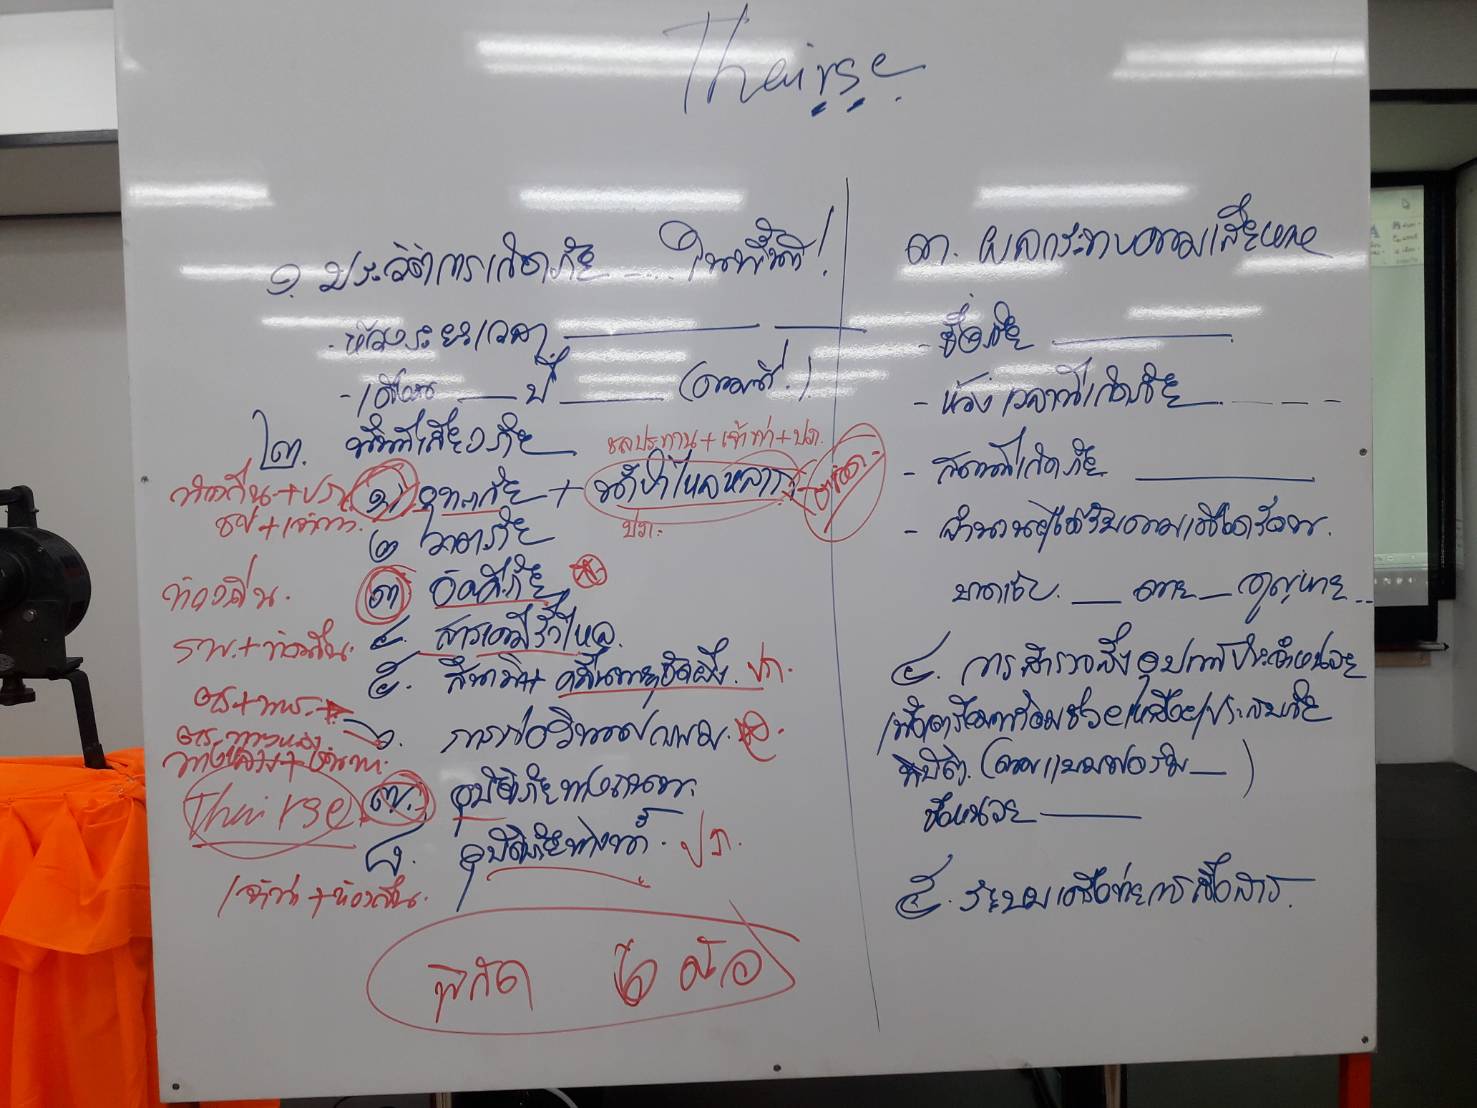 Thairse
๑. ประวัติการเกิดภัย .... ในพื้นที่!
- ห้วงระยะเวลา
- เดือน ____ ปี ____ (ตามที่.)
๒. พื้นที่เสี่ยงภัย
ชลประทาน+เจ้าท่า+ปภ.
ท้องถิ่น+ปภ.
ชป+เจ้าท่า.
๑) อุทกภัย + น้ำป่าไหลหลาก
ปภ.
๒ วาตภัย
ท้องถิ่น.
๓ อัคคีภัย
รพ.+ท้องถิ่น.
๔. สารเคมีรั่วไหล.
๕. สึนามิ+ คลื่นพายุซัดฝั่ง. ปภ.
ตร+ทหาร
๖. การก่อวินาศกรรม.
ตร. ทางหลวง
Thairse
๗. อุบัติภัยทางถนน.
๘. อุบัติภัยทางน้ำ. ปภ.
เจ้าท่า+ท้องถิ่น.
พิกัด ๖ ตัว
๓. ผลกระทบความเสียหาย
- ชื่อภัย ____
- ห้วงเวลาที่เกิดภัย ____
- สถานที่เกิดภัย ____
- จำนวนผู้ได้รับความเดือดร้อน.
บาดเจ็บ. __ ตาย __ สูญหาย ..
๔. การสำรวจสิ่งอุปกรณ์ประจำหน่วย
เพื่อเตรียมพร้อมช่วยเหลือผู้ประสบภัย
พิบัติ. (ตามแบบฟอร์ม __ )
ชื่อหน่วย ____
๕. ระบบเครือข่ายการสื่อสาร.